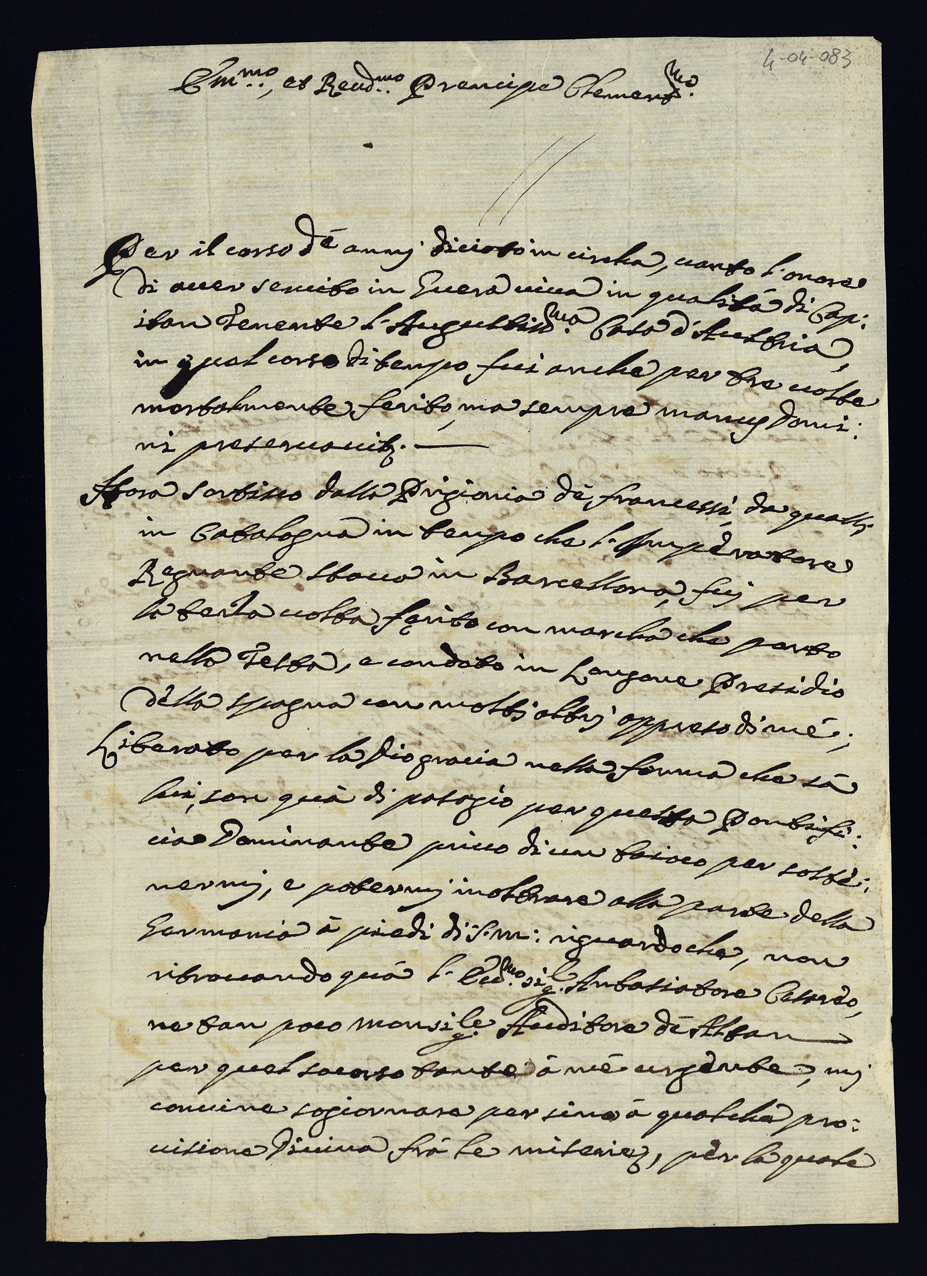 4-04-083
Em.mo, et Reud.mo Prencipe Clement.mo
Per il corso dé annj diciotoin circha, uanto l'onore
di auer seruito in Guera uiua in qualità di Cap:
itan Tenente l'Augustiss.ma Casa d'Austria,
in qual corso di tempo fui anche per tre uolte
mortalmente ferito, ma sempre manus Domi:
ni preseruauit.
Hora sortitto dalla Prigionia dé francessi da quali
in Catalogna in tempo che l'Imperatore
Regnante staua in Barcellona, fuj per
la terza uolta ferito con marcha che porto
nella Testa, e condoto in Longone Presidio
della spagna con molti altrj appreso di mé;
Liberato per la Dio gracia nella forma che sà
lui, son quà di pasagio per questa Pontifi:
cia Dominante priuo di un baioco per sosté:
nermj, e potermj inoltrare alla parte della
Germania à piedi di S: M: riguardo che, non
ritrouando quà l'Ecc.mo sig. Anbasiatore Cesareo,
ne tan poco monsig.e Auditore dé Altan
per quel socorso tante à mé urgente, mi
conuine sogiornare persino à qualche pro:
uisione Diuina frà le miserie, per la quale